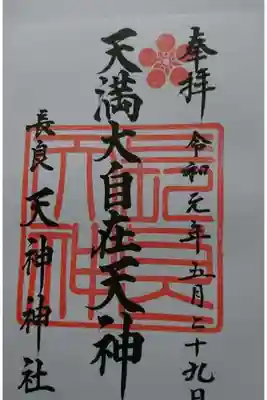 奉拝 令和元年五月二十九日
天満大自在天神
長良 天神神社
長良天神